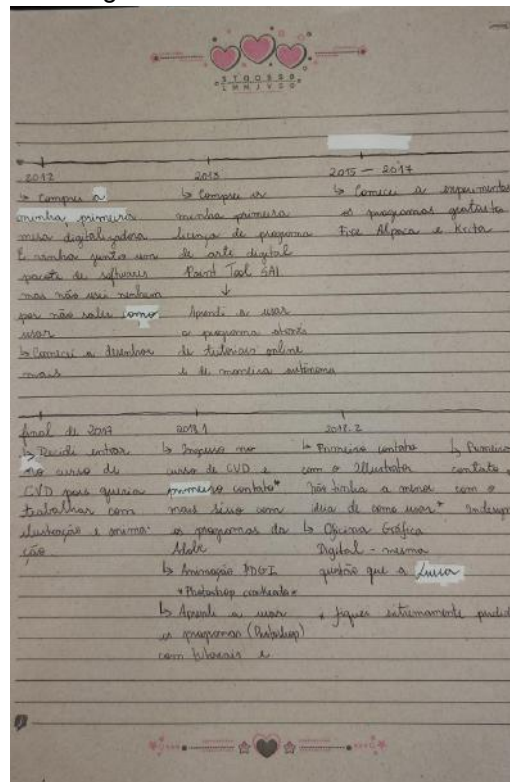 S T Q Q S S D
2012
↳ Comprei a
minha primeira
mesa digitalizadora
E vinha junto um
pacote de softwares
mas não usei nenhum
por não saber como
usar
↳ Comecei a desenhar
mais
2013
↳ Comprei a
minha primeira
licença de programa
de arte digital
Paint Tool SAI
↓
Aprendi a usar
o programa através
de tutoriais online
e de maneira autônoma
2015 — 2017
↳ Comecei a experimentar
os programas gratuitos
Fire Alpaca e Krita
final de 2017
↳ Decidi entrar
no curso de
CVD pois queria
trabalhar com
ilustração e anima-
ção
2018.1
↳ Ingresso no
curso de CVD e
primeiro contato*
mais sério com
os programas da
Adobe
↳ Animação
*Photoshop
↳ Aprendi a usar
os programas (Photoshop)
com tutoriais e
2018.2
↳ Primeiro contato
com o Illustrator
Não tinha a menor
ideia de como usar*
↳ Oficina Gráfica
Digital - mesma
questão que a Luisa
* fiquei extremamente
↳ Primeiro
contato
com o